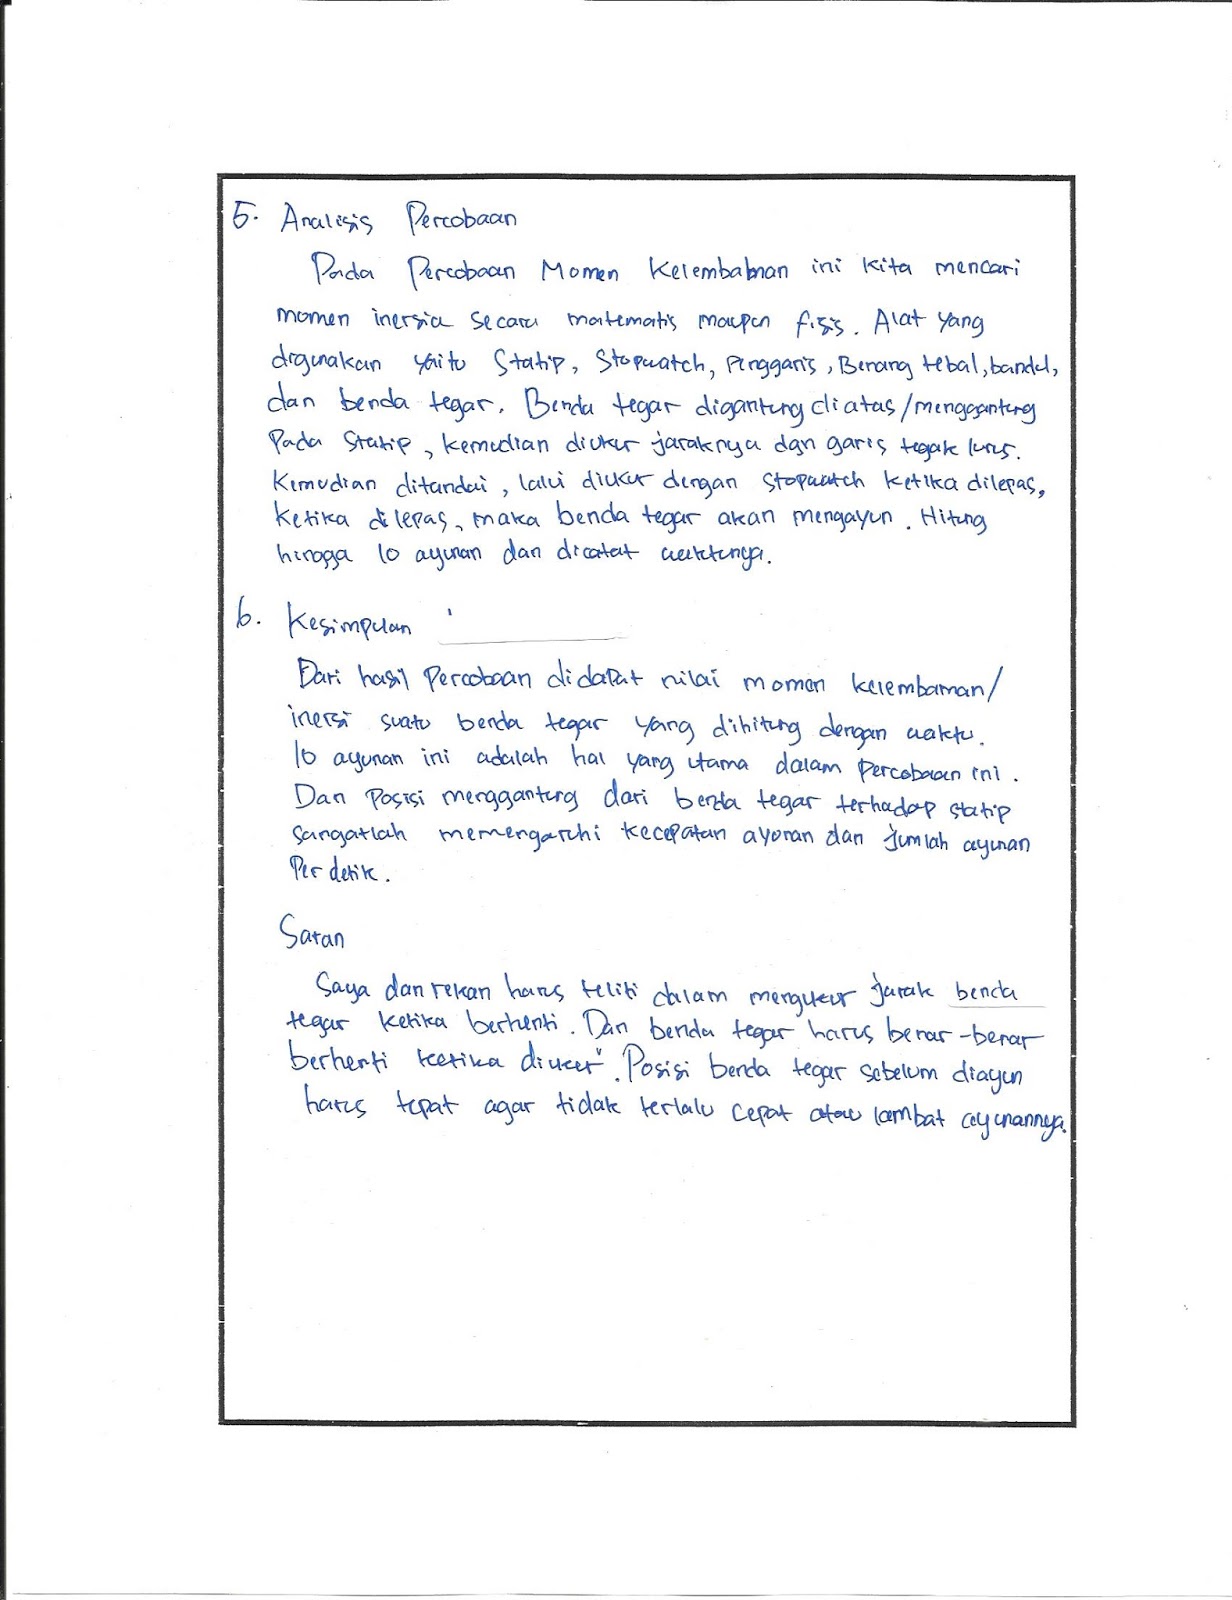 5. Analisis Percobaan
Pada Percobaan Momen Kelembaman ini kita mencari
momen inersia secara matematis maupun fisis. Alat yang
digunakan yaitu Statip, Stopwatch, Penggaris, Benang tebal, bandul,
dan benda tegar. Benda tegar digantung diatas/menggantung
Pada Statip, kemudian diukur jaraknya dgn garis tegak lurus.
Kemudian ditandai, lalu diukur dengan Stopwatch ketika dilepas,
ketika dilepas, maka benda tegar akan mengayun. Hitung
hingga 10 ayunan dan dicatat waktunya.
6. Kesimpulan
Dari hasil Percobaan didapat nilai momen kelembaman/
inersi suatu benda tegar yang dihitung dengan waktu.
10 ayunan ini adalah hal yang utama dalam Percobaan ini.
Dan Posisi menggantung dari benda tegar terhadap statip
sangatlah memengaruhi kecepatan ayunan dan jumlah ayunan
Per detik.
Saran
Saya dan rekan harus teliti dalam mengukur jarak benda
tegar ketika berhenti. Dan benda tegar harus benar-benar
berhenti ketika diukur. Posisi benda tegar sebelum diayun
harus tepat agar tidak terlalu cepat atau lambat ayunannya.